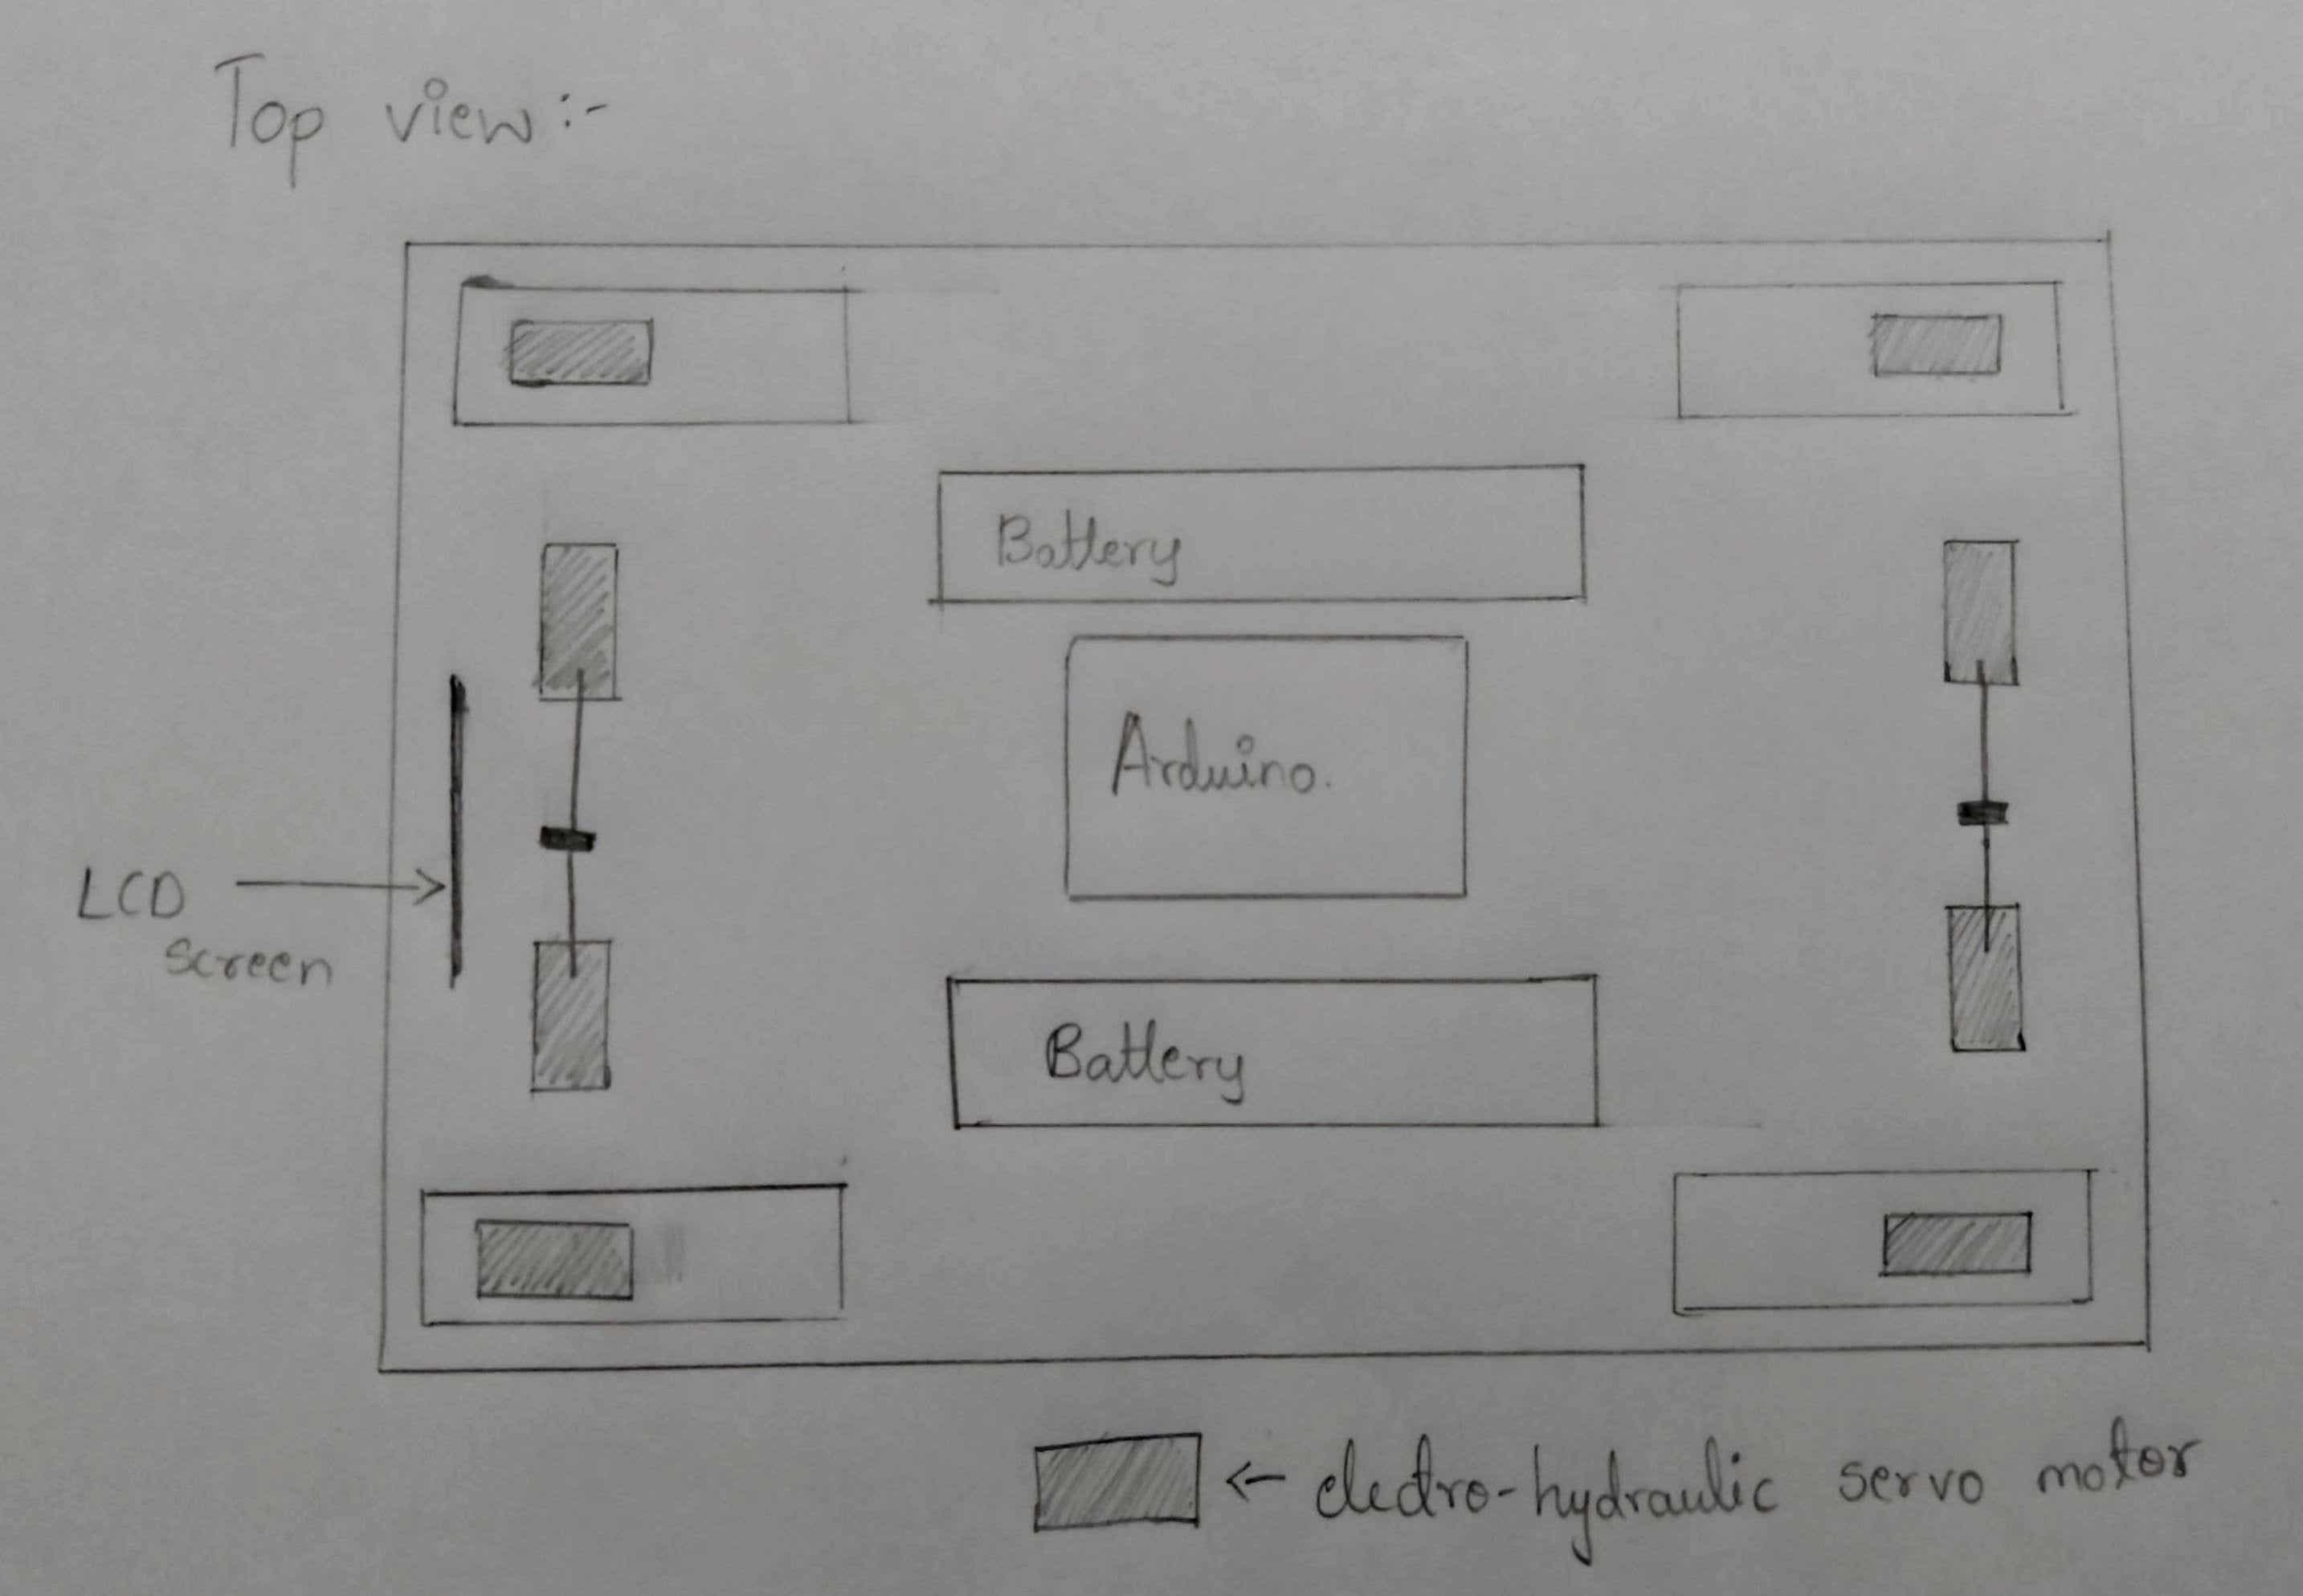 Top view :-
Battery
Arduino.
LCD
screen
Battery
← electro-hydraulic servo motor